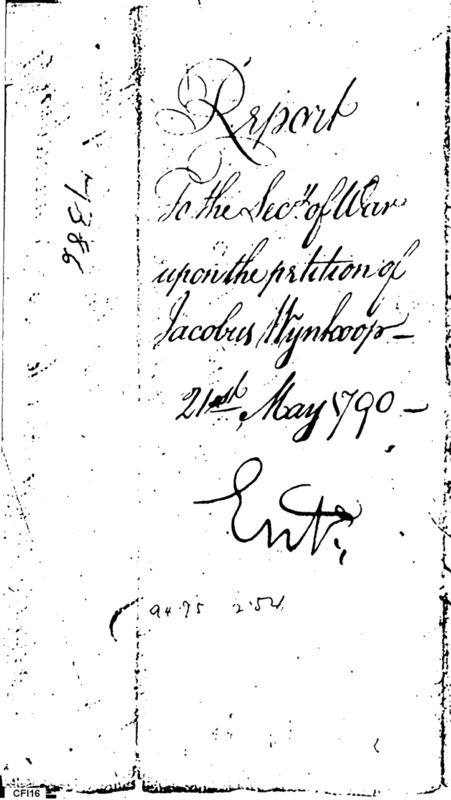 Report
To the Secʳʸ of War
upon the petition of
Jacobus Wynkoop—
21st May 1790—
Entᵈ.
1386
CFI16